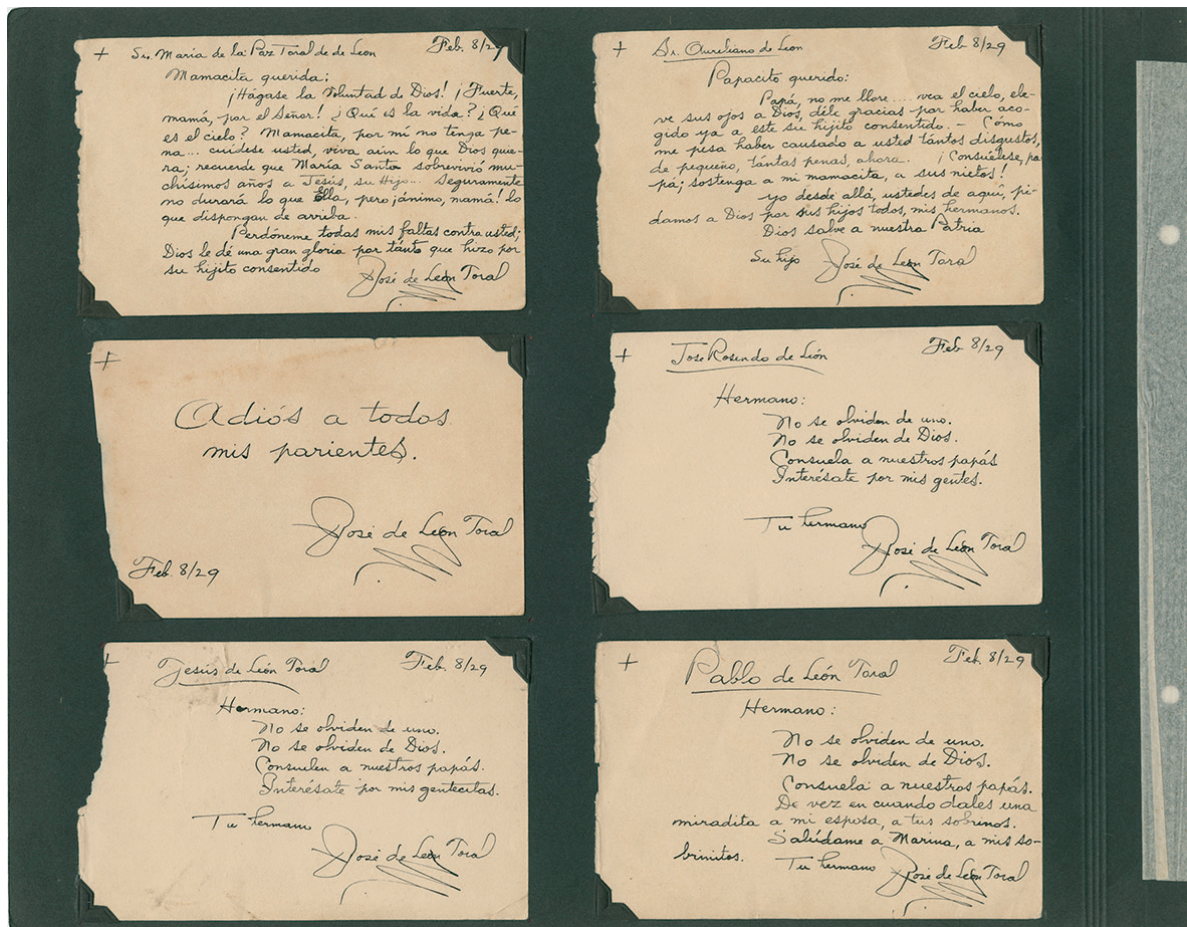 + Sra. María de la Paz Toral de de León Feb. 8/29
Mamacita querida:
¡Hágase la Voluntad de Dios! ¡Fuerte,
mamá, por el Señor! ¿Qué es la vida? ¿Qué
es el cielo? Mamacita, por mí no tenga pe-
na... cuídese usted, viva aún lo que Dios quie-
ra; recuerde que María Santa sobrevivió mu-
chísimos años a Jesús, su Hijo... Seguramente
no durará lo que Ella, pero ¡ánimo, mamá! lo
que dispongan de arriba.
Perdóneme todas mis faltas contra usted;
Dios le dé una gran gloria por tánto que hizo por
su hijito consentido José de León Toral
+ Sr. Aureliano de León Feb 8/29
Papacito querido:
Papá, no me llore.... vea el cielo, ele-
ve sus ojos a Dios, déle gracias por haber aco-
gido ya a este su hijito consentido. - Cómo
me pesa haber causado a usted tántos disgustos,
de pequeño, tántas penas, ahora. ¡Consuélese, pa-
pá; sostenga a mi mamacita, a sus nietos!
yo desde allá, ustedes de aquí, pi-
damos a Dios por sus hijos todos, mis hermanos.
Dios salve a nuestra Patria
Su hijo José de León Toral
+
Adiós a todos
mis parientes.
José de León Toral
Feb. 8/29
+ José Rosendo de León Feb 8/29
Hermano:
No se olviden de uno.
No se olviden de Dios.
Consuela a nuestros papás
Interésate por mis gentes.
Tu hermano José de León Toral
+ Jesús de León Toral Feb. 8/29
Hermano:
No se olviden de uno.
No se olviden de Dios.
Consuelen a nuestros papás.
Interésate por mis gentecitas.
Tu hermano
José de León Toral
+ Pablo de León Toral Feb. 8/29
Hermano:
No se olviden de uno.
No se olviden de Dios.
Consuela a nuestros papás.
De vez en cuando dales una
miradita a mi esposa, a tus sobrinos.
Salúdame a Marina, a mis so-
brinitos. Tu hermano José de León Toral